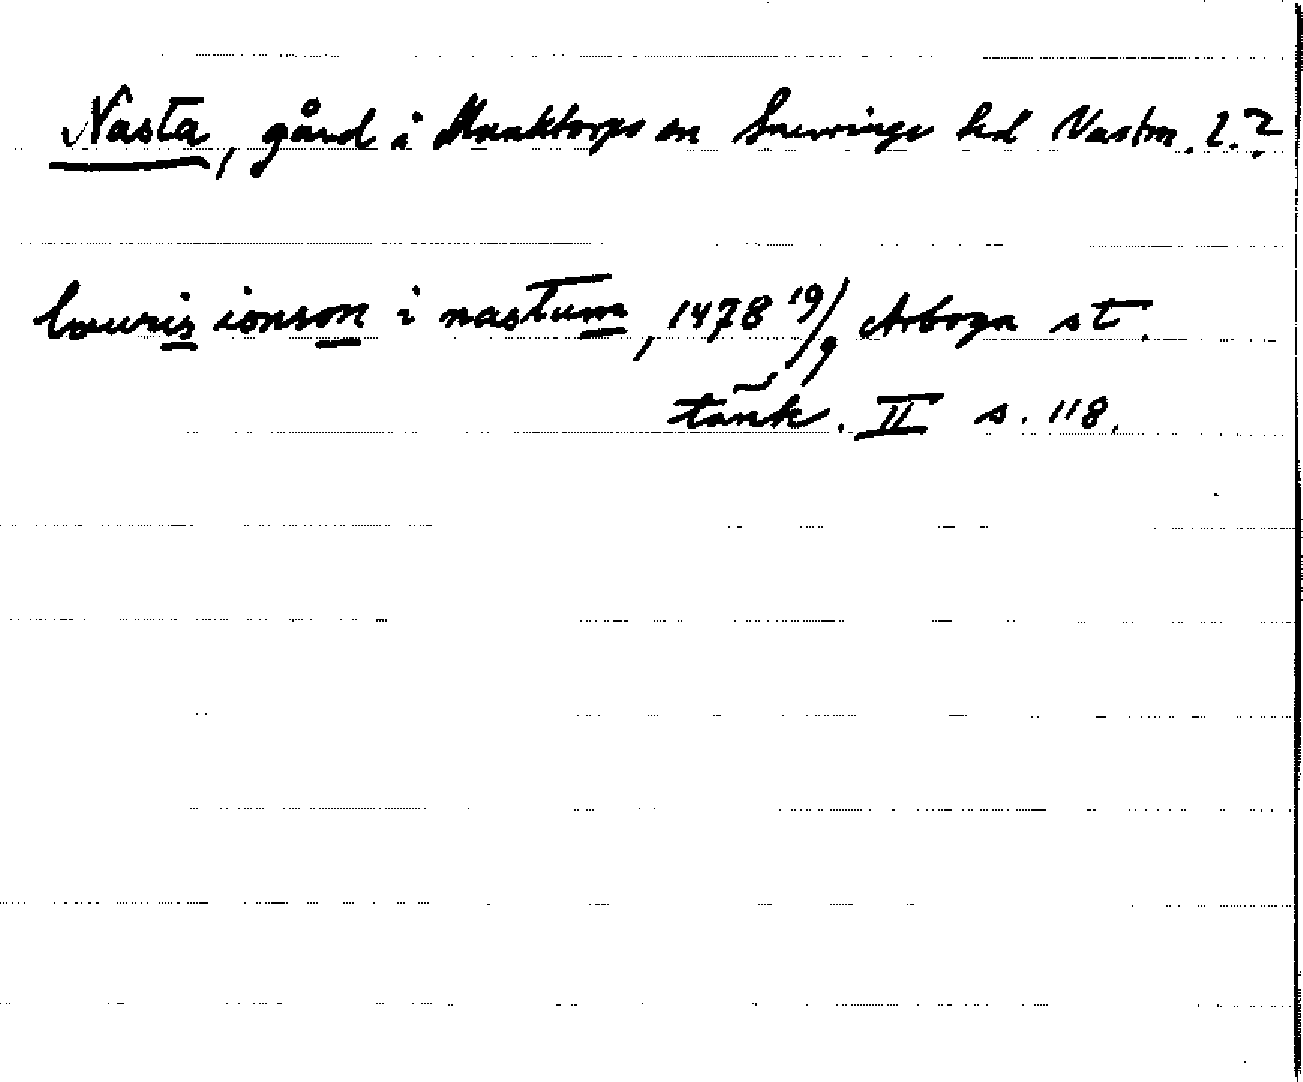 Nasta, gård i Munktorps sn Snevringe hd Vastm. l.?
lauris ionson i nastum, 1478 19/9 Arboga st.
tänk. II s. 118.